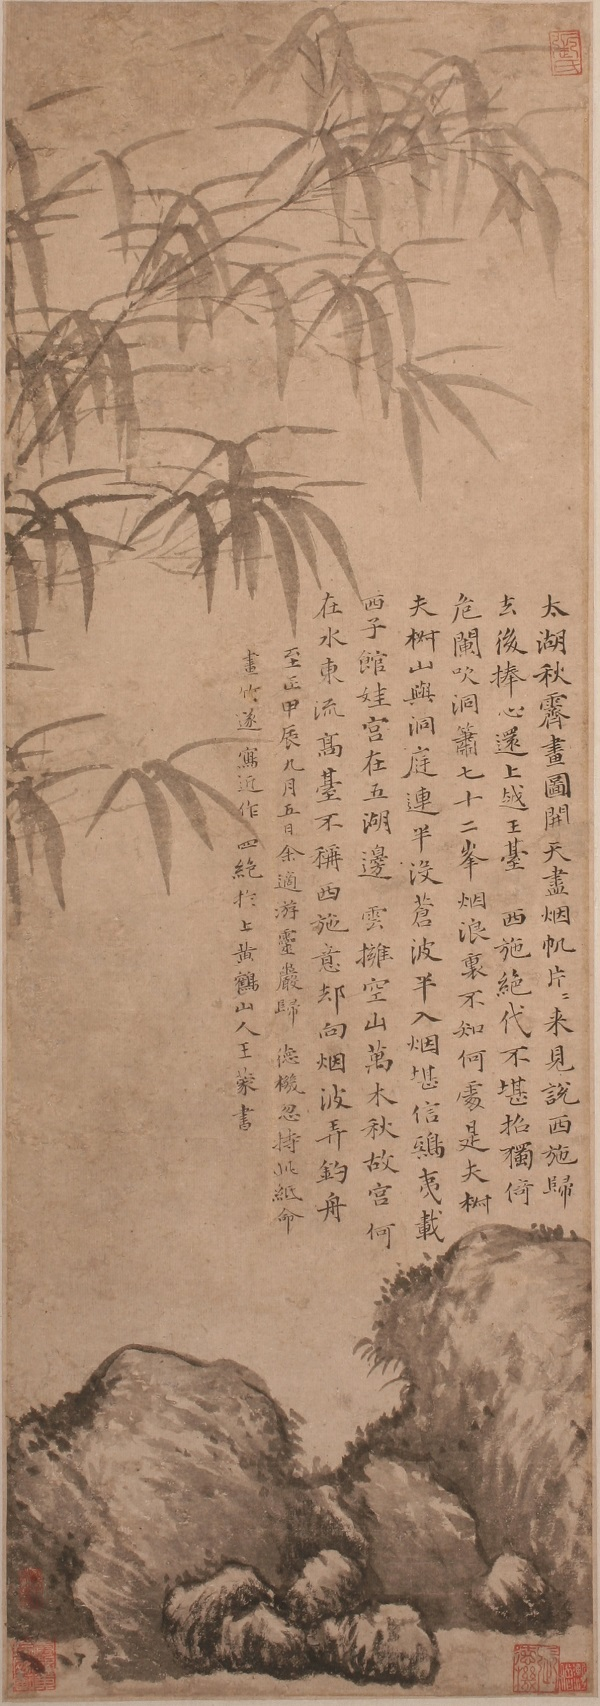 太湖秋霽畫圖開天盡烟帆片〻来見說西施歸
去後捧心還上越王臺 西施絕代不堪招獨倚
危闌吹洞簫七十二峯烟浪裏不知何處是夫椒
夫椒山與洞庭連半没蒼波半入烟堪信鴟夷載
西子館娃宫在五湖邊 雲擁空山萬木秋故宫何
在水東流髙臺不稱西施意却向烟波弄釣舟
至正甲辰九月五日余適游靈巖歸 德機忽持此紙命
畫竹遂寫近作四絶於上黃鶴山人王蒙書